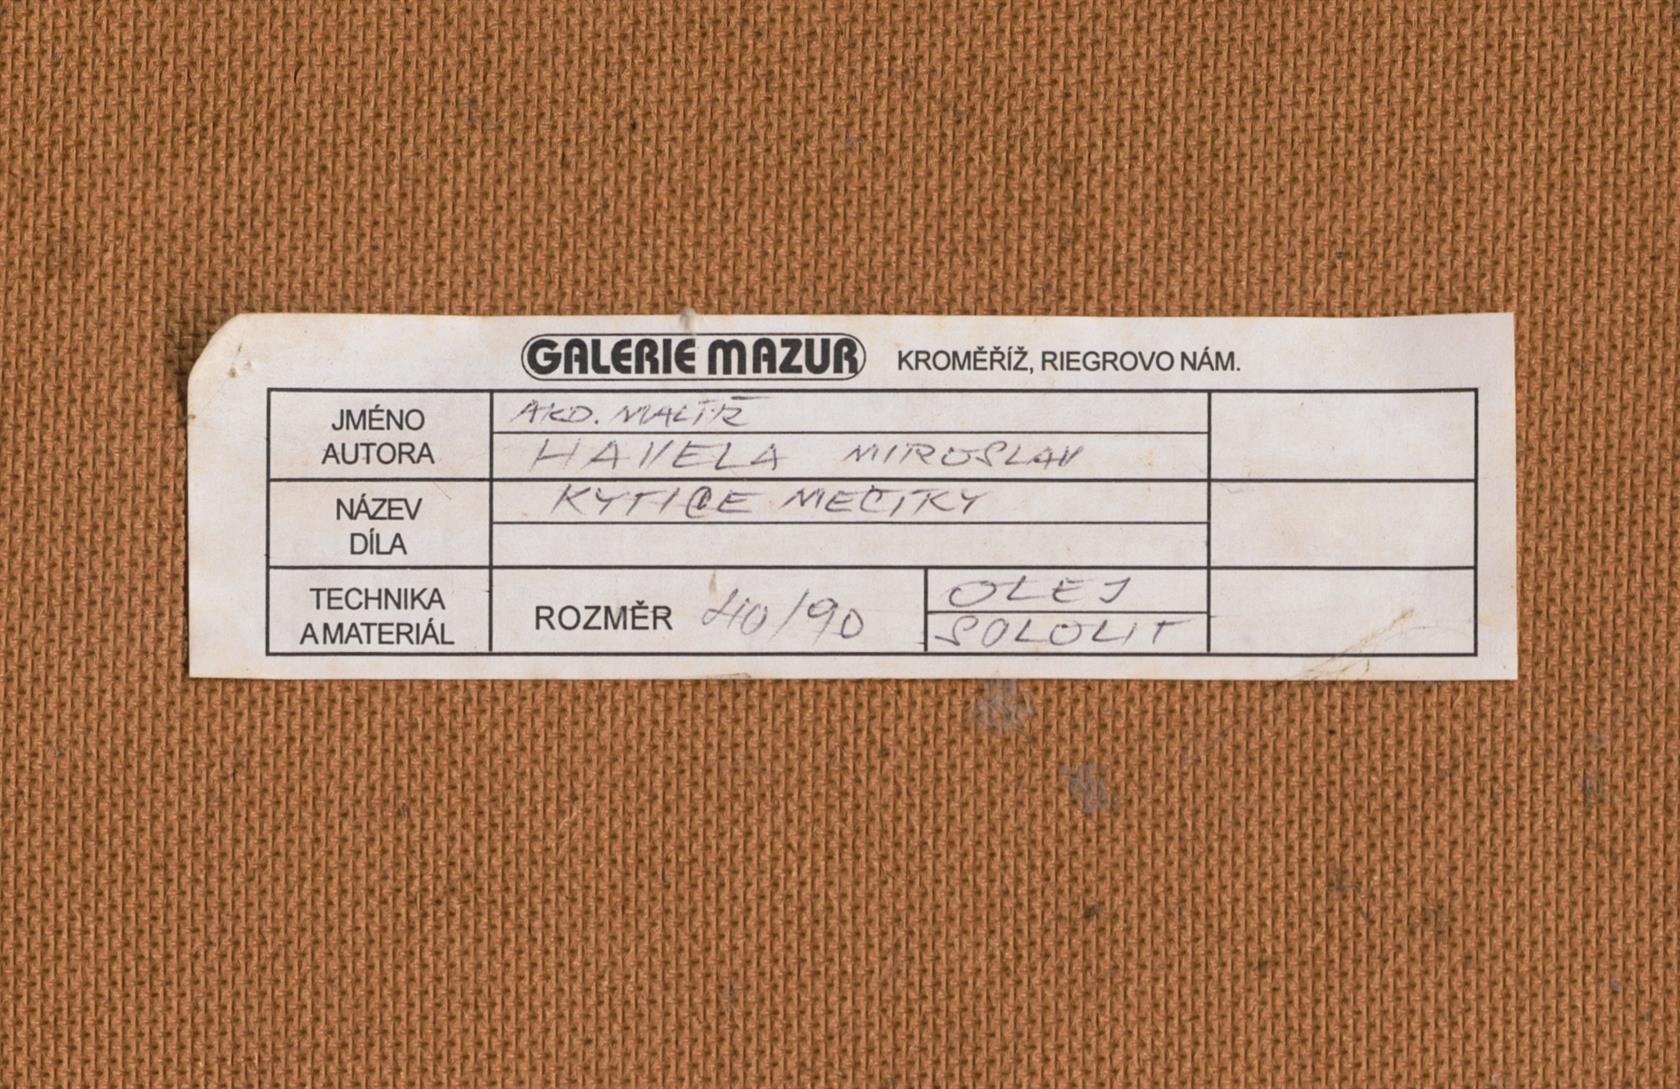 GALERIE MAZUR KROMĚŘÍŽ, RIEGROVO NÁM.
JMÉNO AUTORA
AKD. MALÍŘ
HAVELA MIROSLAV
NÁZEV DÍLA
KYTICE MEČÍKY
TECHNIKA A MATERIÁL
ROZMĚR 40/90
OLEJ
SOLOLIT